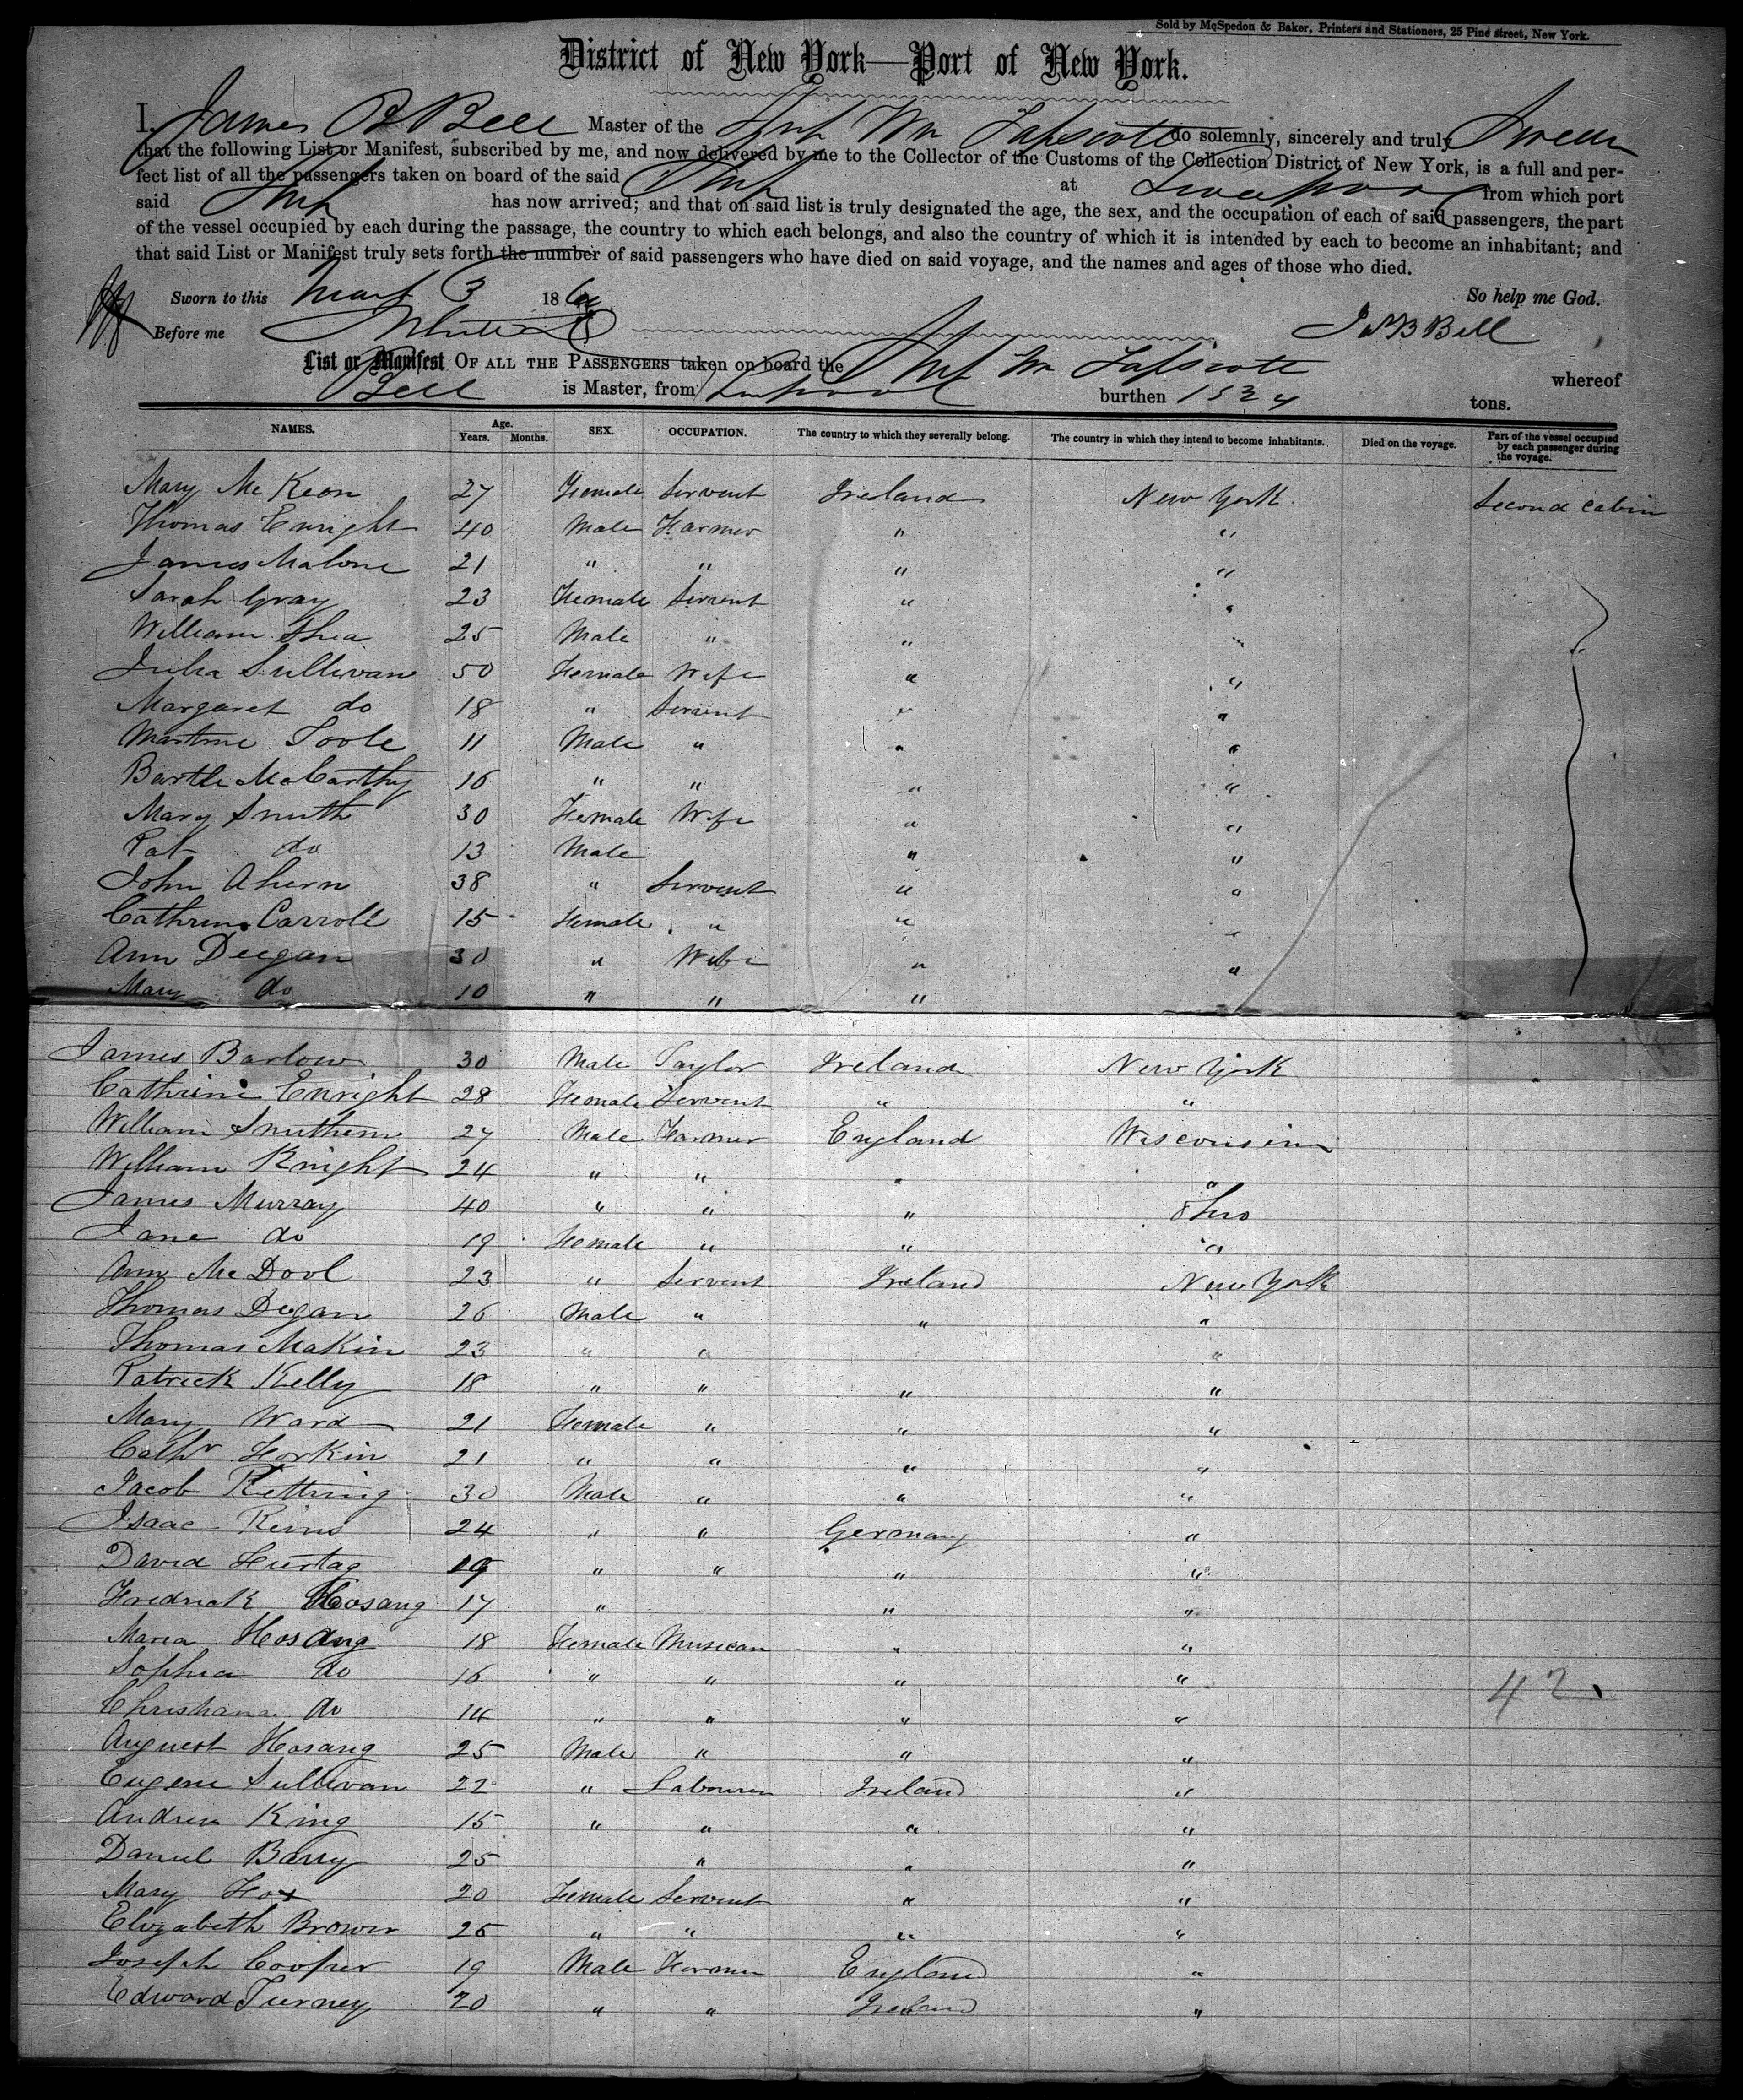 Sold by McSpedon & Baker, Printers and Stationers, 25 Pine street, New York.
District of New York—Port of New York.
I, James B Bell Master of the Ship Wm Tapscott do solemnly, sincerely and truly Swear
that the following List or Manifest, subscribed by me, and now delivered by me to the Collector of the Customs of the Collection District of New York, is a full and per-
fect list of all the passengers taken on board of the said Ship at Liverpool from which port
said Ship has now arrived; and that on said list is truly designated the age, the sex, and the occupation of each of said passengers, the part
of the vessel occupied by each during the passage, the country to which each belongs, and also the country of which it is intended by each to become an inhabitant; and
that said List or Manifest truly sets forth the number of said passengers who have died on said voyage, and the names and ages of those who died.
Sworn to this 3 186 So help me God.
Before me Jas B Bell
List or Manifest OF ALL THE PASSENGERS taken on board the Ship Wm Tapscott whereof
Bell is Master, from Liverpool burthen 152 tons.
NAMES. Age. Years. Months. SEX. OCCUPATION. The country to which they severally belong. The country in which they intend to become inhabitants. Died on the voyage. Part of the vessel occupied by each passenger during the voyage.
Mary Mc Keon 27 Female Servent Ireland New York. Second cabin
Thomas Enright 40 Male Farmer " "
James Malone 21 " " " "
Sarah Gray 23 Female Servent " "
William Shea 25 Male " " "
Julia Sullivan 50 Female Wife " "
Margaret do 18 " Servent " "
Toole 11 Male " " "
Bartle McCarthy 16 " " " "
Mary Smith 30 Female Wife " "
Pat do 13 Male " "
John Ahern 38 " Servent " "
Cathrine Carroll 15 Female " " "
Ann Deegan 30 " Wife " "
Mary do 10 " " "
James Barlow 30 Male Taylor Ireland New York
Cathrine Enright 28 Female Servent " "
William 27 Male Farmer England Wisconsin
William Knight 24 " " " "
James Murray 40 " " " Ohio
Jane do 19 Female " " "
Ann Mc Dool 23 " Servent Ireland New York
Thomas Degan 26 Male " " "
Thomas Makin 23 " " "
Patrick Kelly 18 " " " "
Mary Ward 21 Female " " "
Cathr Horkin 21 " " " "
Jacob Rettring 30 Male " " "
Isaac Reins 24 " " Germany "
David Hurtag 19 " " " "
Fredrick Hosang 17 " " "
Maria Hosang 18 Female Musican " "
Sophia do 16 " " " "
Christiana do 14 " " " "
Auguest Hosang 25 Male " " "
42
Eugene Sullivan 22 " Labourer Ireland "
Andrew King 15 " " " "
Daniel Barry 25 " " "
Mary Fox 20 Female Servent " "
Elizabeth Brown 25 " " " "
Joseph Cooper 19 Male Farmer England "
Edward Turney 20 " " Ireland "